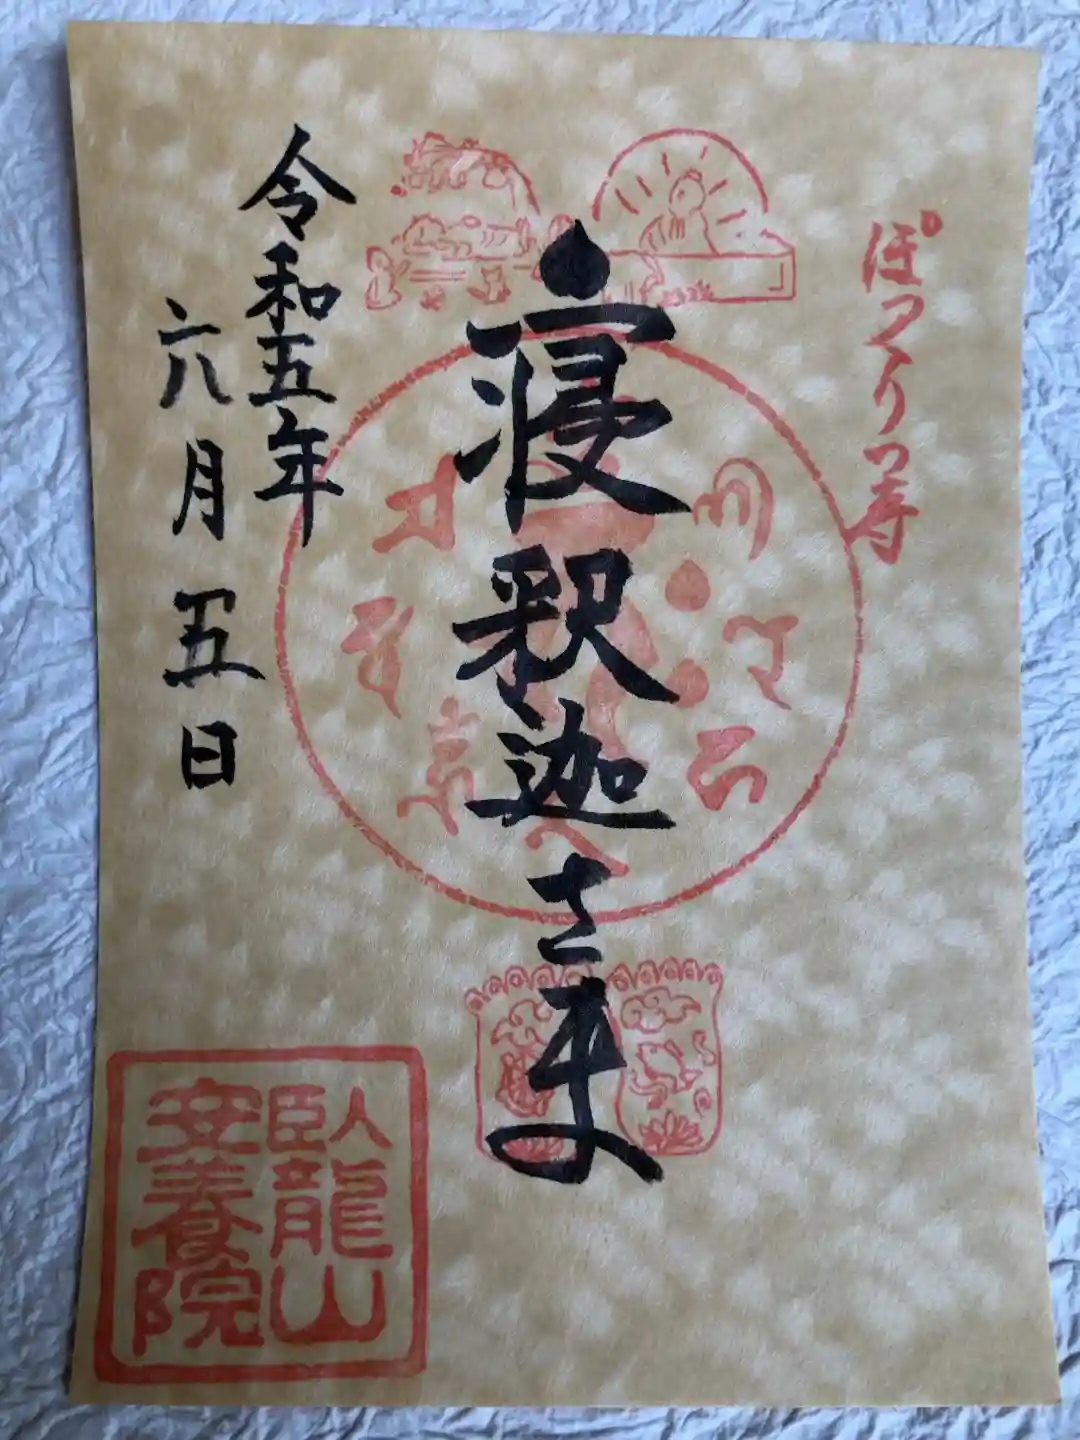 ぽっくりっ寺
寝釈迦さま
令和五年
六月五日
臥龍山
安養院